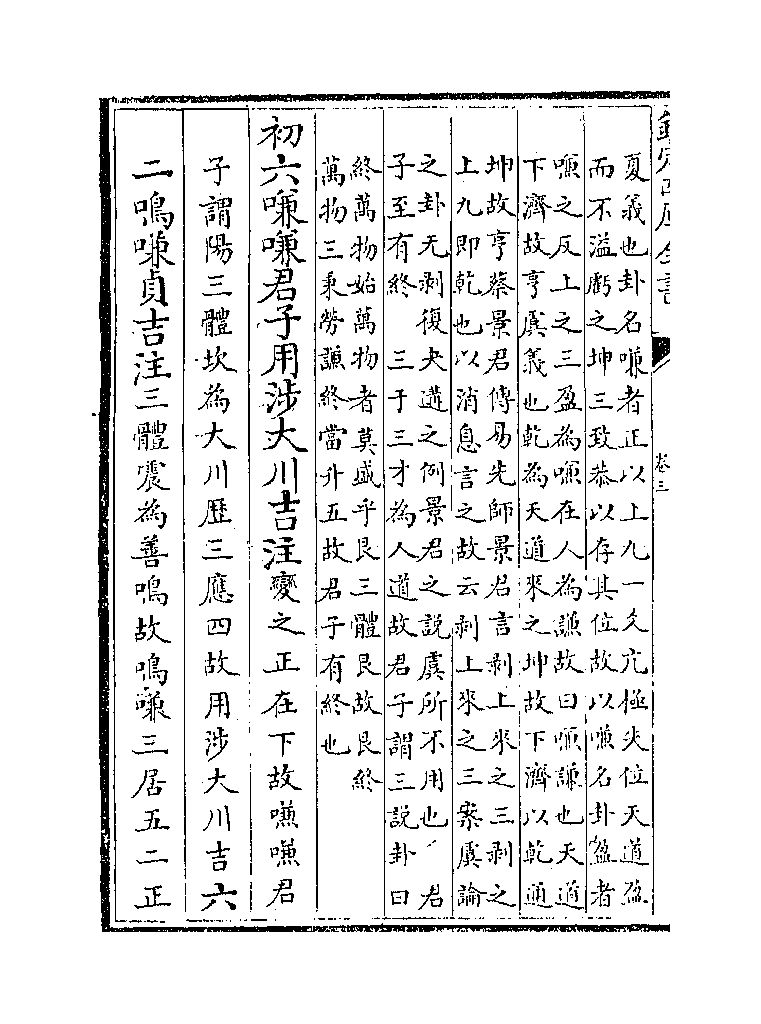 欽定四庫全書
卷三
夏義也卦名嗛者正以上九一爻亢極失位天道盈
而不溢虧之坤三致恭以存其位故以嗛名卦盈者
嗛之反上之三盈為嗛在人為謙故曰嗛謙也天道
下濟故亨虞義也乾為天道來之坤故下濟以乾通
坤故亨蔡景君傳易先師景君言剥上來之三剥之
上九即乾也以消息言之故云剥上來之三案虞論
之卦无剥復夬遘之例景君之說虞所不用也 君
子至有終 三于三才為人道故君子謂三說卦曰
終萬物始萬物者莫盛乎艮三體艮故艮終
萬物三秉勞謙終當升五故君子有終也
初六嗛嗛君子用涉大川吉注變之正在下故嗛嗛君
子謂陽三體坎為大川歷三應四故用涉大川吉六
二鳴嗛貞吉注三體震為善鳴故鳴嗛三居五二正